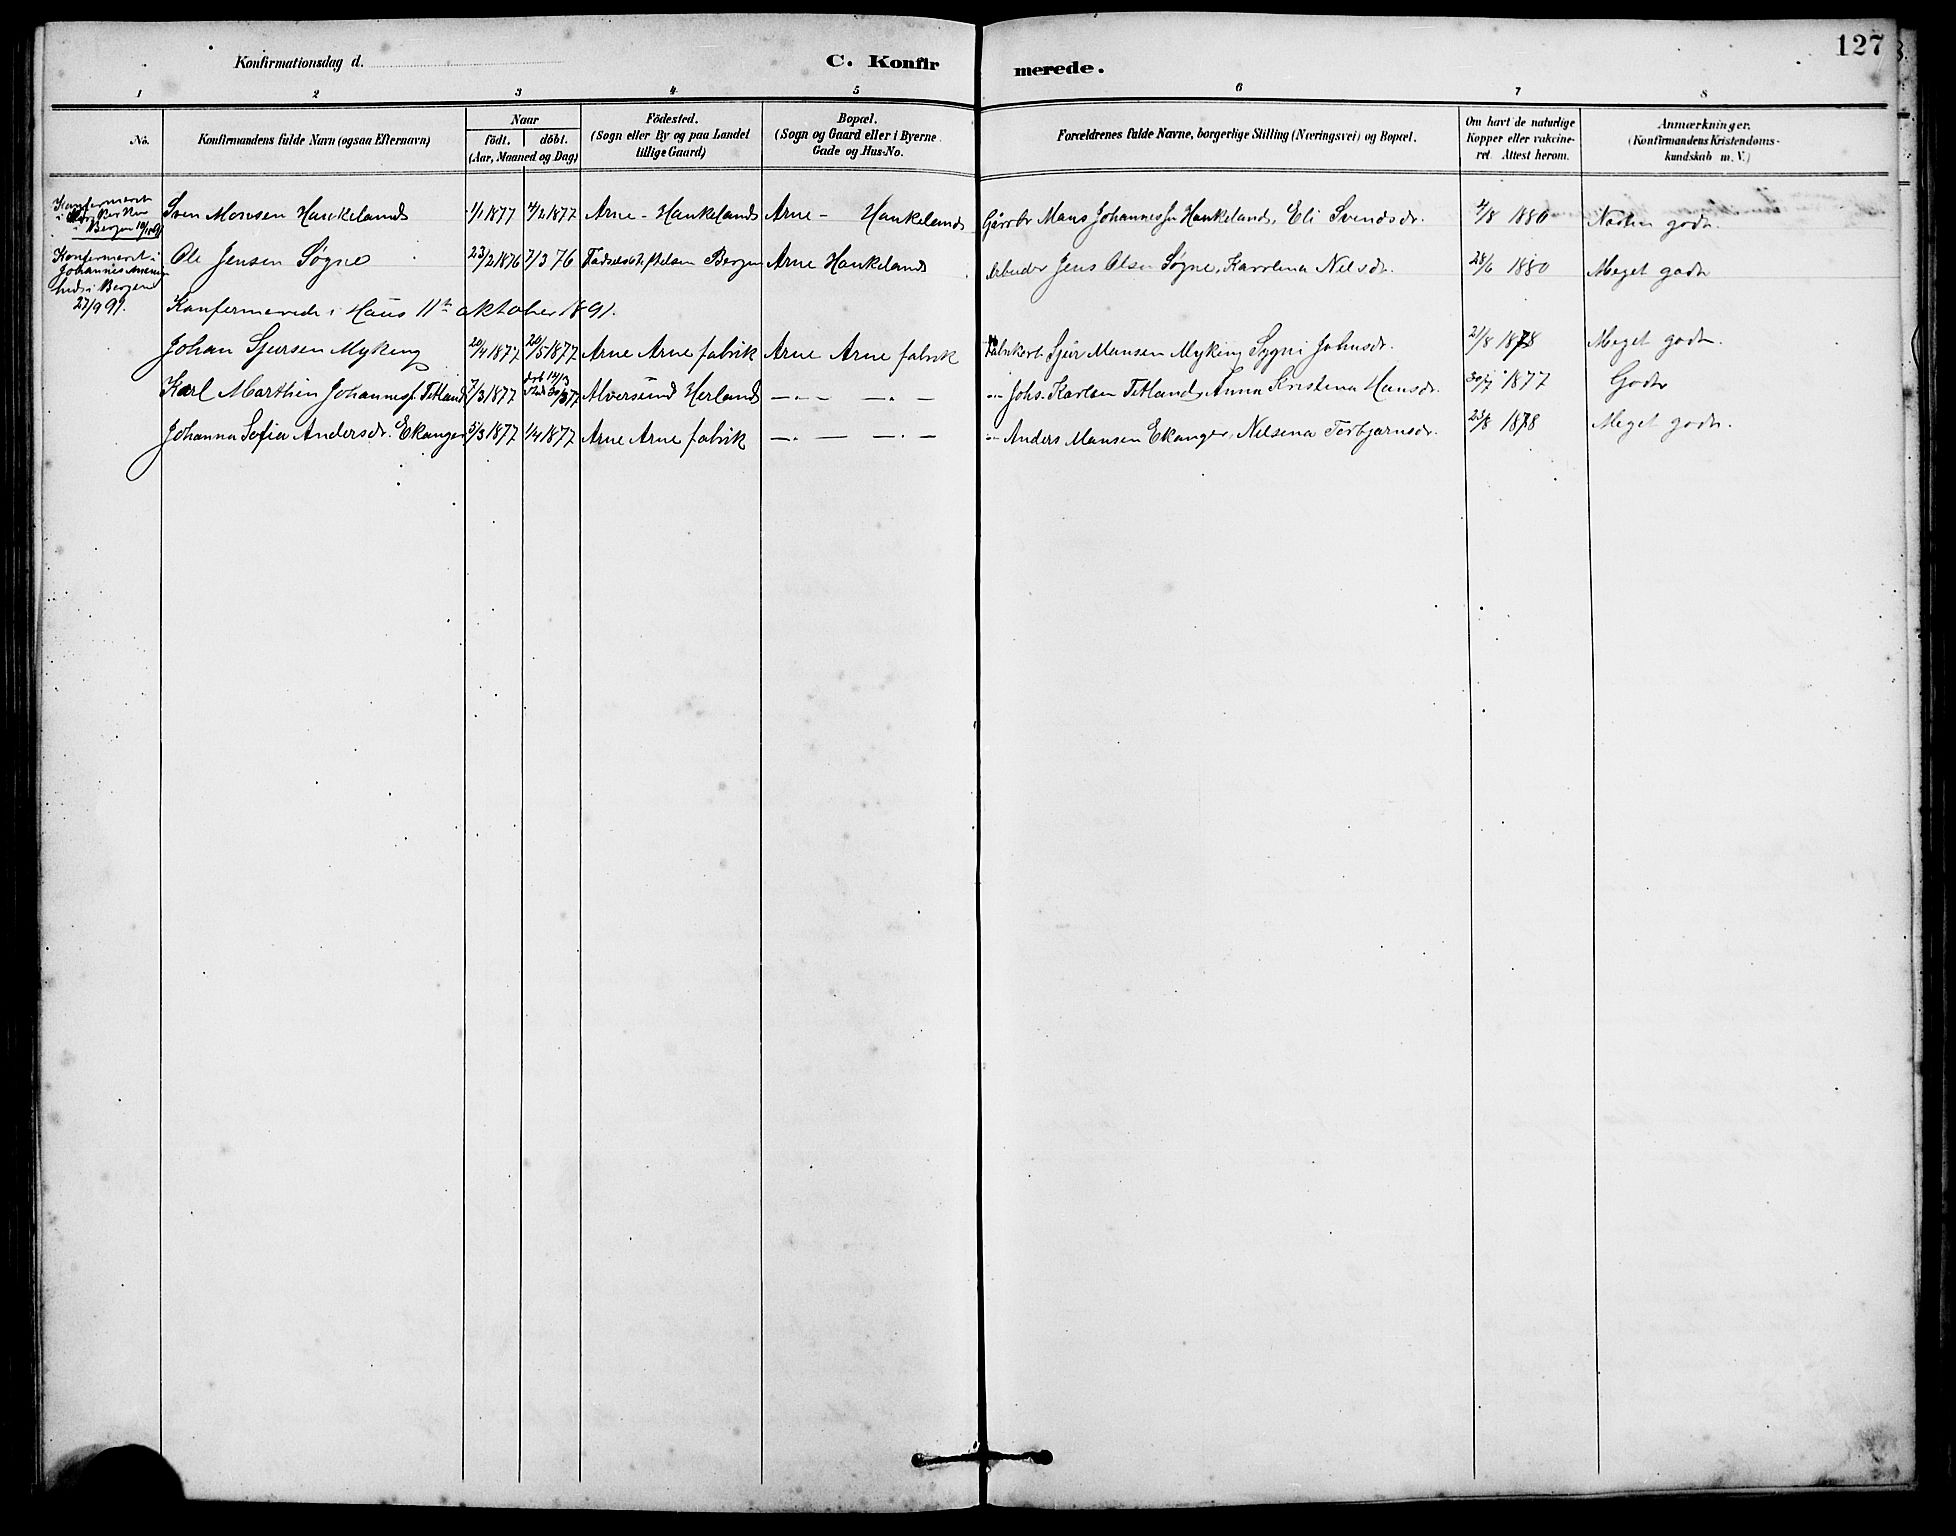 127
Konfirmationsdag d.
C. Konfirmerede.
1 2 3 4 5 6 7 8
No.
Konfirmandens fulde Navn (ogsaa Efternavn)
Naar
födt. döbt.
(Aar, Maaned og Dag)
Födested.
(Sogn eller By og paa Landet
tillige Gaard)
Bopæl.
(Sogn og Gaard eller i Byerne
Gade og Hus-No.
Forældrenes fulde Navne, borgerlige Stilling (Næringsvei) og Bopæl.
Om havt de naturlige
Kopper eller vakcine-
ret Attest herom.
Anmærkninger.
(Konfirmandens Kristendoms-
kundskab m. V.)
Konfermeret
i
i Bergen
Sven Monsen Haukeland 1/1 1877 4/2 1877 Arne - Haukeland Arne - Haukeland Mans Johannessen Haukeland, Eli Svendsdr. 4/8 1880 godt.
Konfermeret i
Johannes
i Bergen
27/9 91.
Ole Jensen Søgne 23/2 1876 7/3 76 Fødselsstiftelsen Bergen Arne Haukeland Arbeider Jens Olsen Søgne, Karolina Nilsdr. 28/6 1880 Meget godt
Konfermerede i Haus 11te oktober 1891.
Johan Sjursen Myking 20/4 1877 20/5 1877 Arne Arne fabrik Arne Arne fabrik Fabrikarb. Sjur Mansen Myking Sygni Johnsdr. 21/8 1878 Meget godt.
Karl Marthin Johannesf. Tetland 7/3 1877 Alversund Herland — . — — . — -"- Johs. Karlsen Tetland, Anna Kristina Hansdr. 30/7 1877 Godt
Johanna Sofia Andersdr. Ekanger 5/3 1877 1/4 1877 Arne Arne fabrik — . — — . — -"- Anders Mansen Ekanger, Nilsena Torbjørnsdr. 23/8 1878 Meget godt.